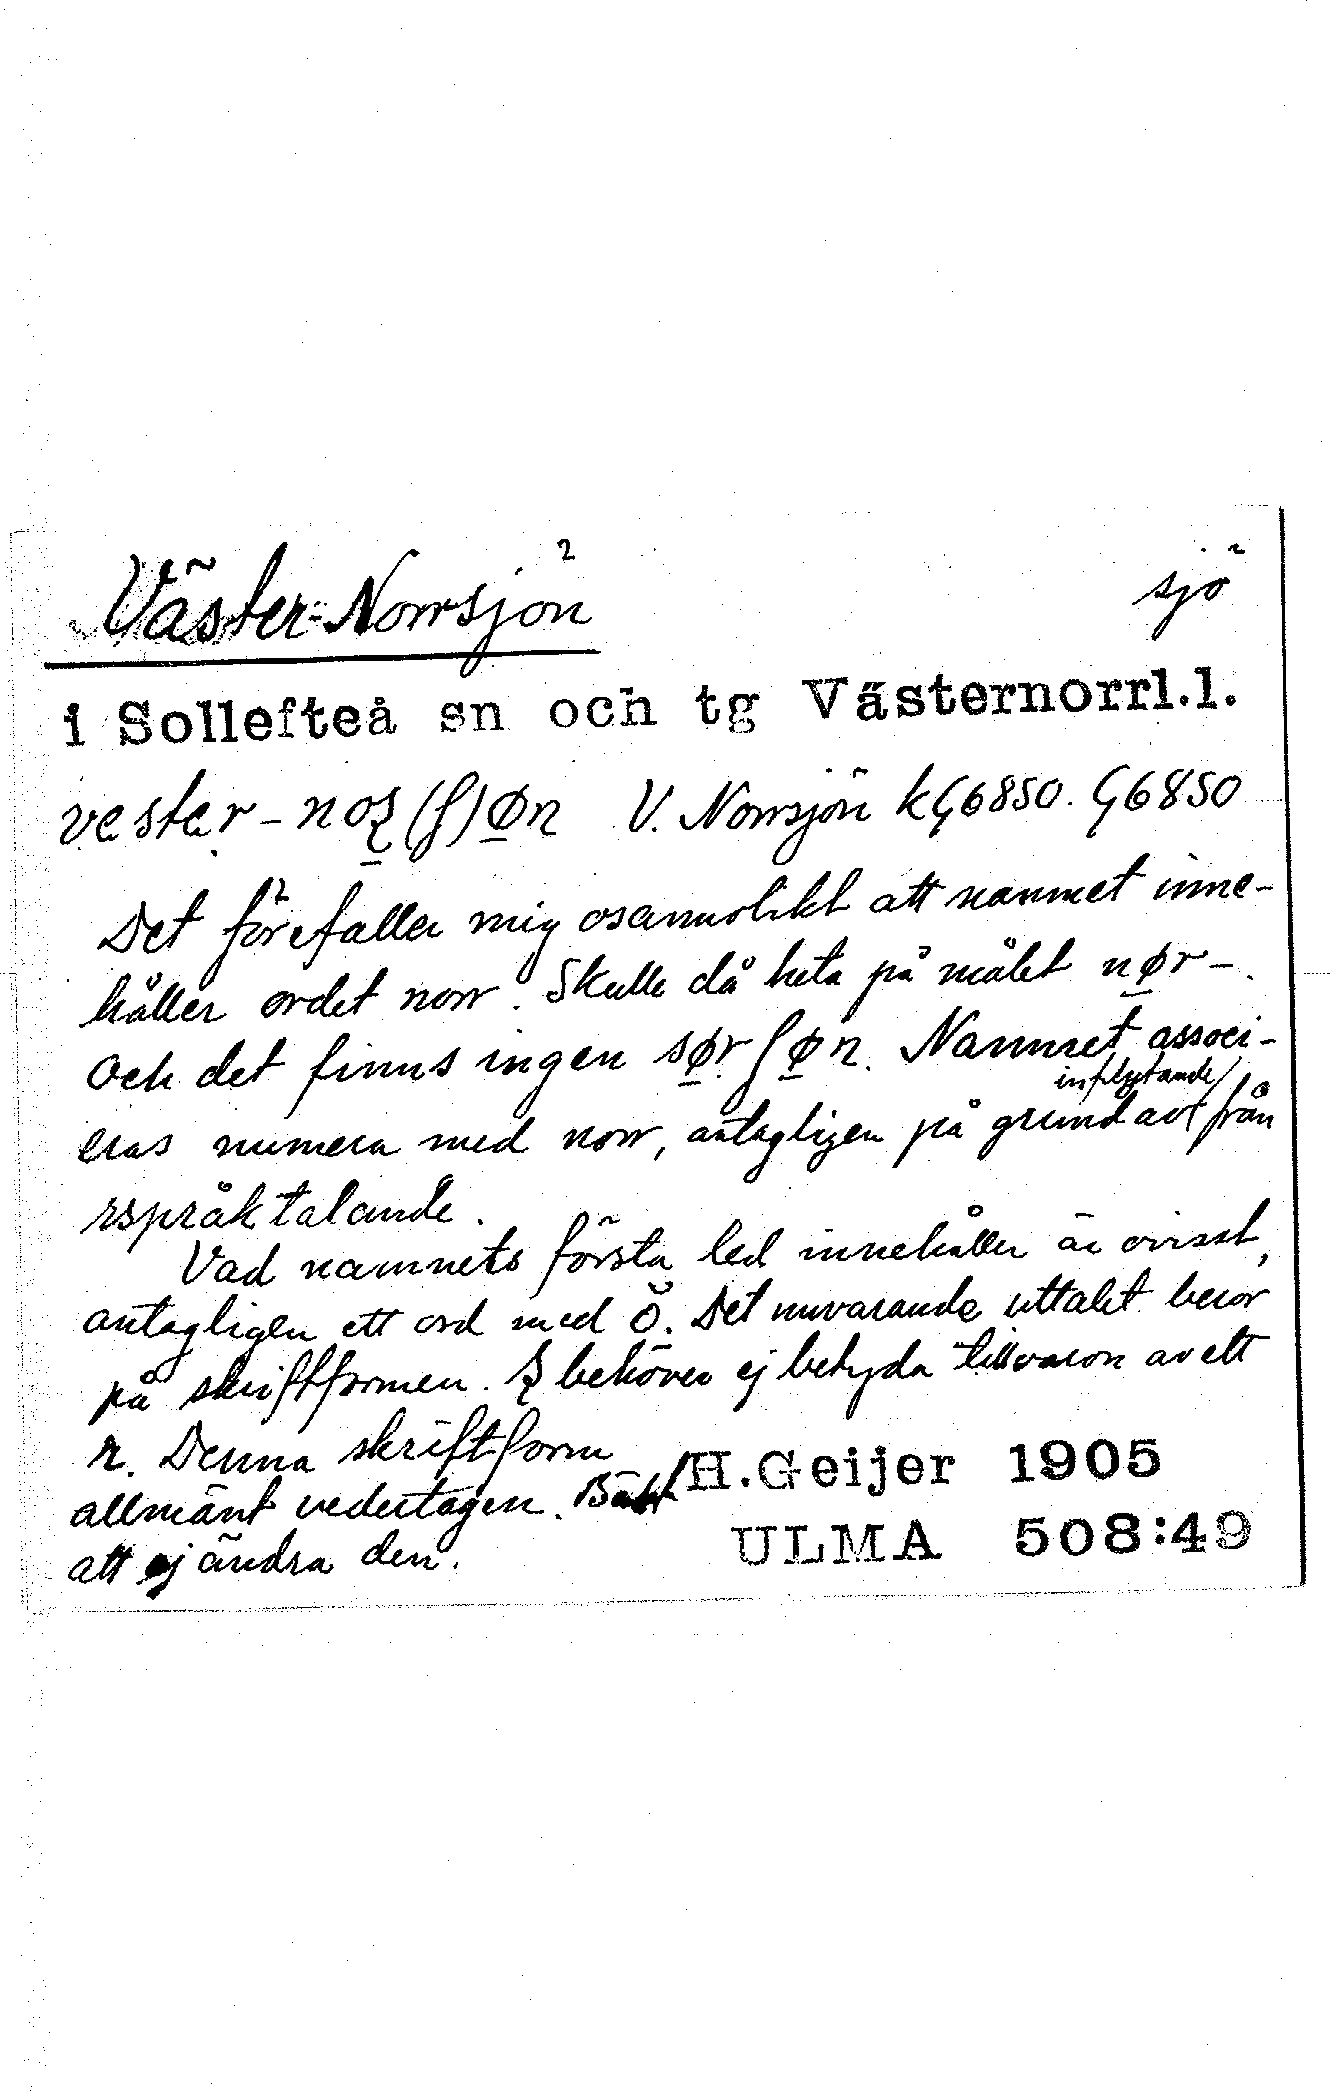 Väster-Norrsjön 2 sjö
i Sollefteå sn och tg Västernorrl.l.
vester-noʂ(ʃ)øn V. Norrsjön kG6850. G6850
Det förefaller mig osannolikt att namnet inne-
håller ordet norr. Skulle då heta på målet nør-.
Och det finns ingen sørʃøn. Namnet associ-
eras numera med norr, antagligen på grund av inflytande från
rspråktalande.
Vad namnets första led innehåller är ovisst,
antagligen ett ord med Ö. Det nuvarande uttalet beror
på skriftformen. ʂ behöver ej betyda tillvaron av ett
r. Denna skriftform
allmänt vedertagen. Bäst
att ej ändra den.
H.Geijer 1905
ULMA 508:49